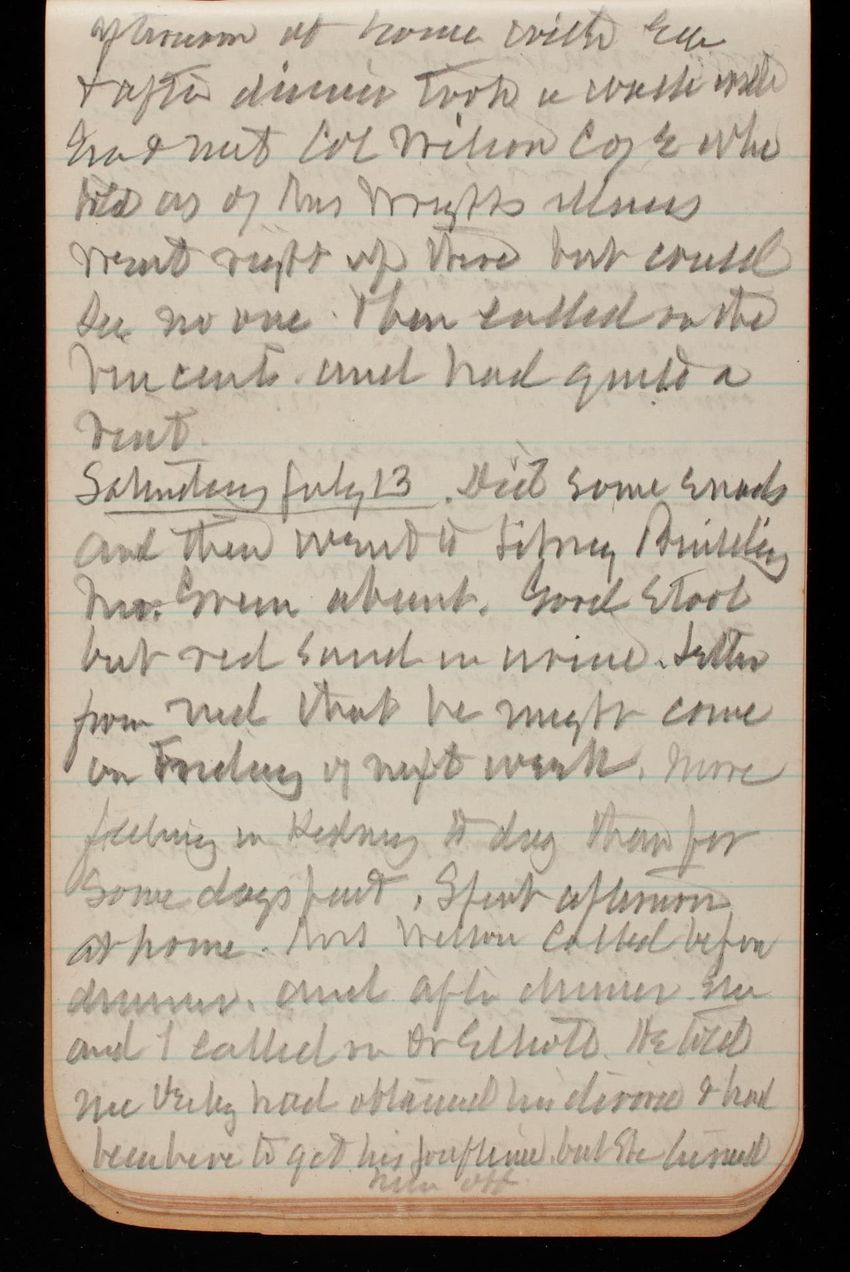 afternoon at home with Eva
& after dinner took a walk with
Eva & met Col Wilson Coy E who
told us of Mrs Wrights illness
Went right up there but could
see no one. Then called on the
Vincents and had quite a
visit.
Saturday July 13. Did some errands
and then went to Building
Mr. Green absent. Good stool
but red sand in urine. Letter
from Ned that he might come
on Friday of next week. More
feeling in Kidney to day than for
some days past. Spent afternoon
at home. Mrs Wilson called before
dinner. and after dinner Eva
and I called on Dr Elliott. He told
me had obtained his divorce & had
been here to get his but he turned
him off